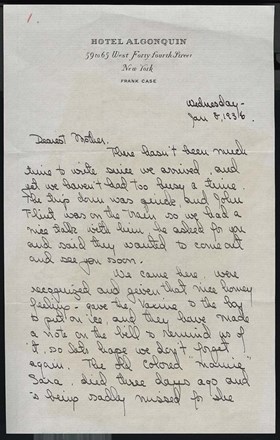 1.
HOTEL ALGONQUIN
59 to 65 West Forty Fourth Street
New York
FRANK CASE
Wednesday -
Jan 8, 1936.
Dearest Mother,
There hasn't been much
time to write since we arrived, and
yet we haven't had too busy a time.
The trip down was quick and John
Flint was on the train so we had a
nice talk with him. he asked for you
and said they wanted to come out
and see you soon.
We came here, were
recognized and given that nice homey
feeling - gave the vaccine to the boy
to put on ice, and they have made
a note on the bill to remind us of
it, so let's hope we don't forget
again. The old colored "mamie"
Sara, died three days ago and
is being sadly missed for she